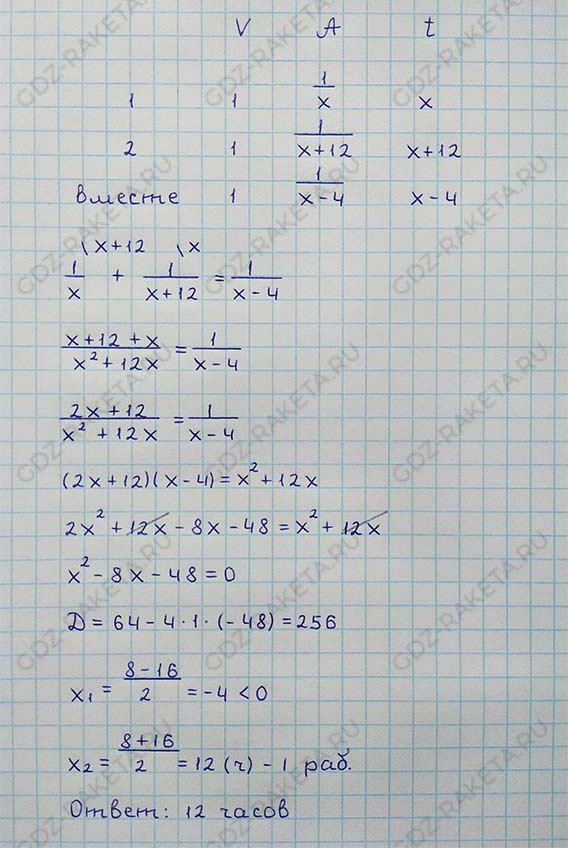 V A t
1 1 1/x x
2 1 1/(x+12) x+12
вместе 1 1/(x-4) x-4
\x+12 \x
1/x + 1/(x+12) = 1/(x-4)
(x+12+x)/(x²+12x) = 1/(x-4)
(2x+12)/(x²+12x) = 1/(x-4)
(2x+12)(x-4) = x²+12x
2x²+12x-8x-48 = x²+12x
x²-8x-48=0
D = 64-4·1·(-48) = 256
x₁ = (8-16)/2 = -4 < 0
x₂ = (8+16)/2 = 12 (ч) - 1 раб.
Ответ: 12 часов
GDZ-RAKETA.RU